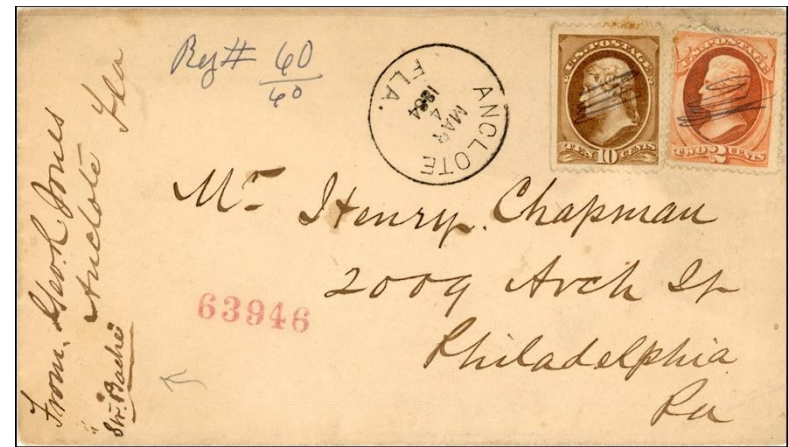 From. Geo. R. Jones
Anclote Fla
Str. Bache
Reg# 60
60
ANCLOTE
MAR
4
1884
FLA.
U.S. POSTAGE
TEN 10 CENTS
U.S. POSTAGE
TWO 2 CENTS
Mr Henry. Chapman
2009 Arch St
Philadelphia
Pa
63946